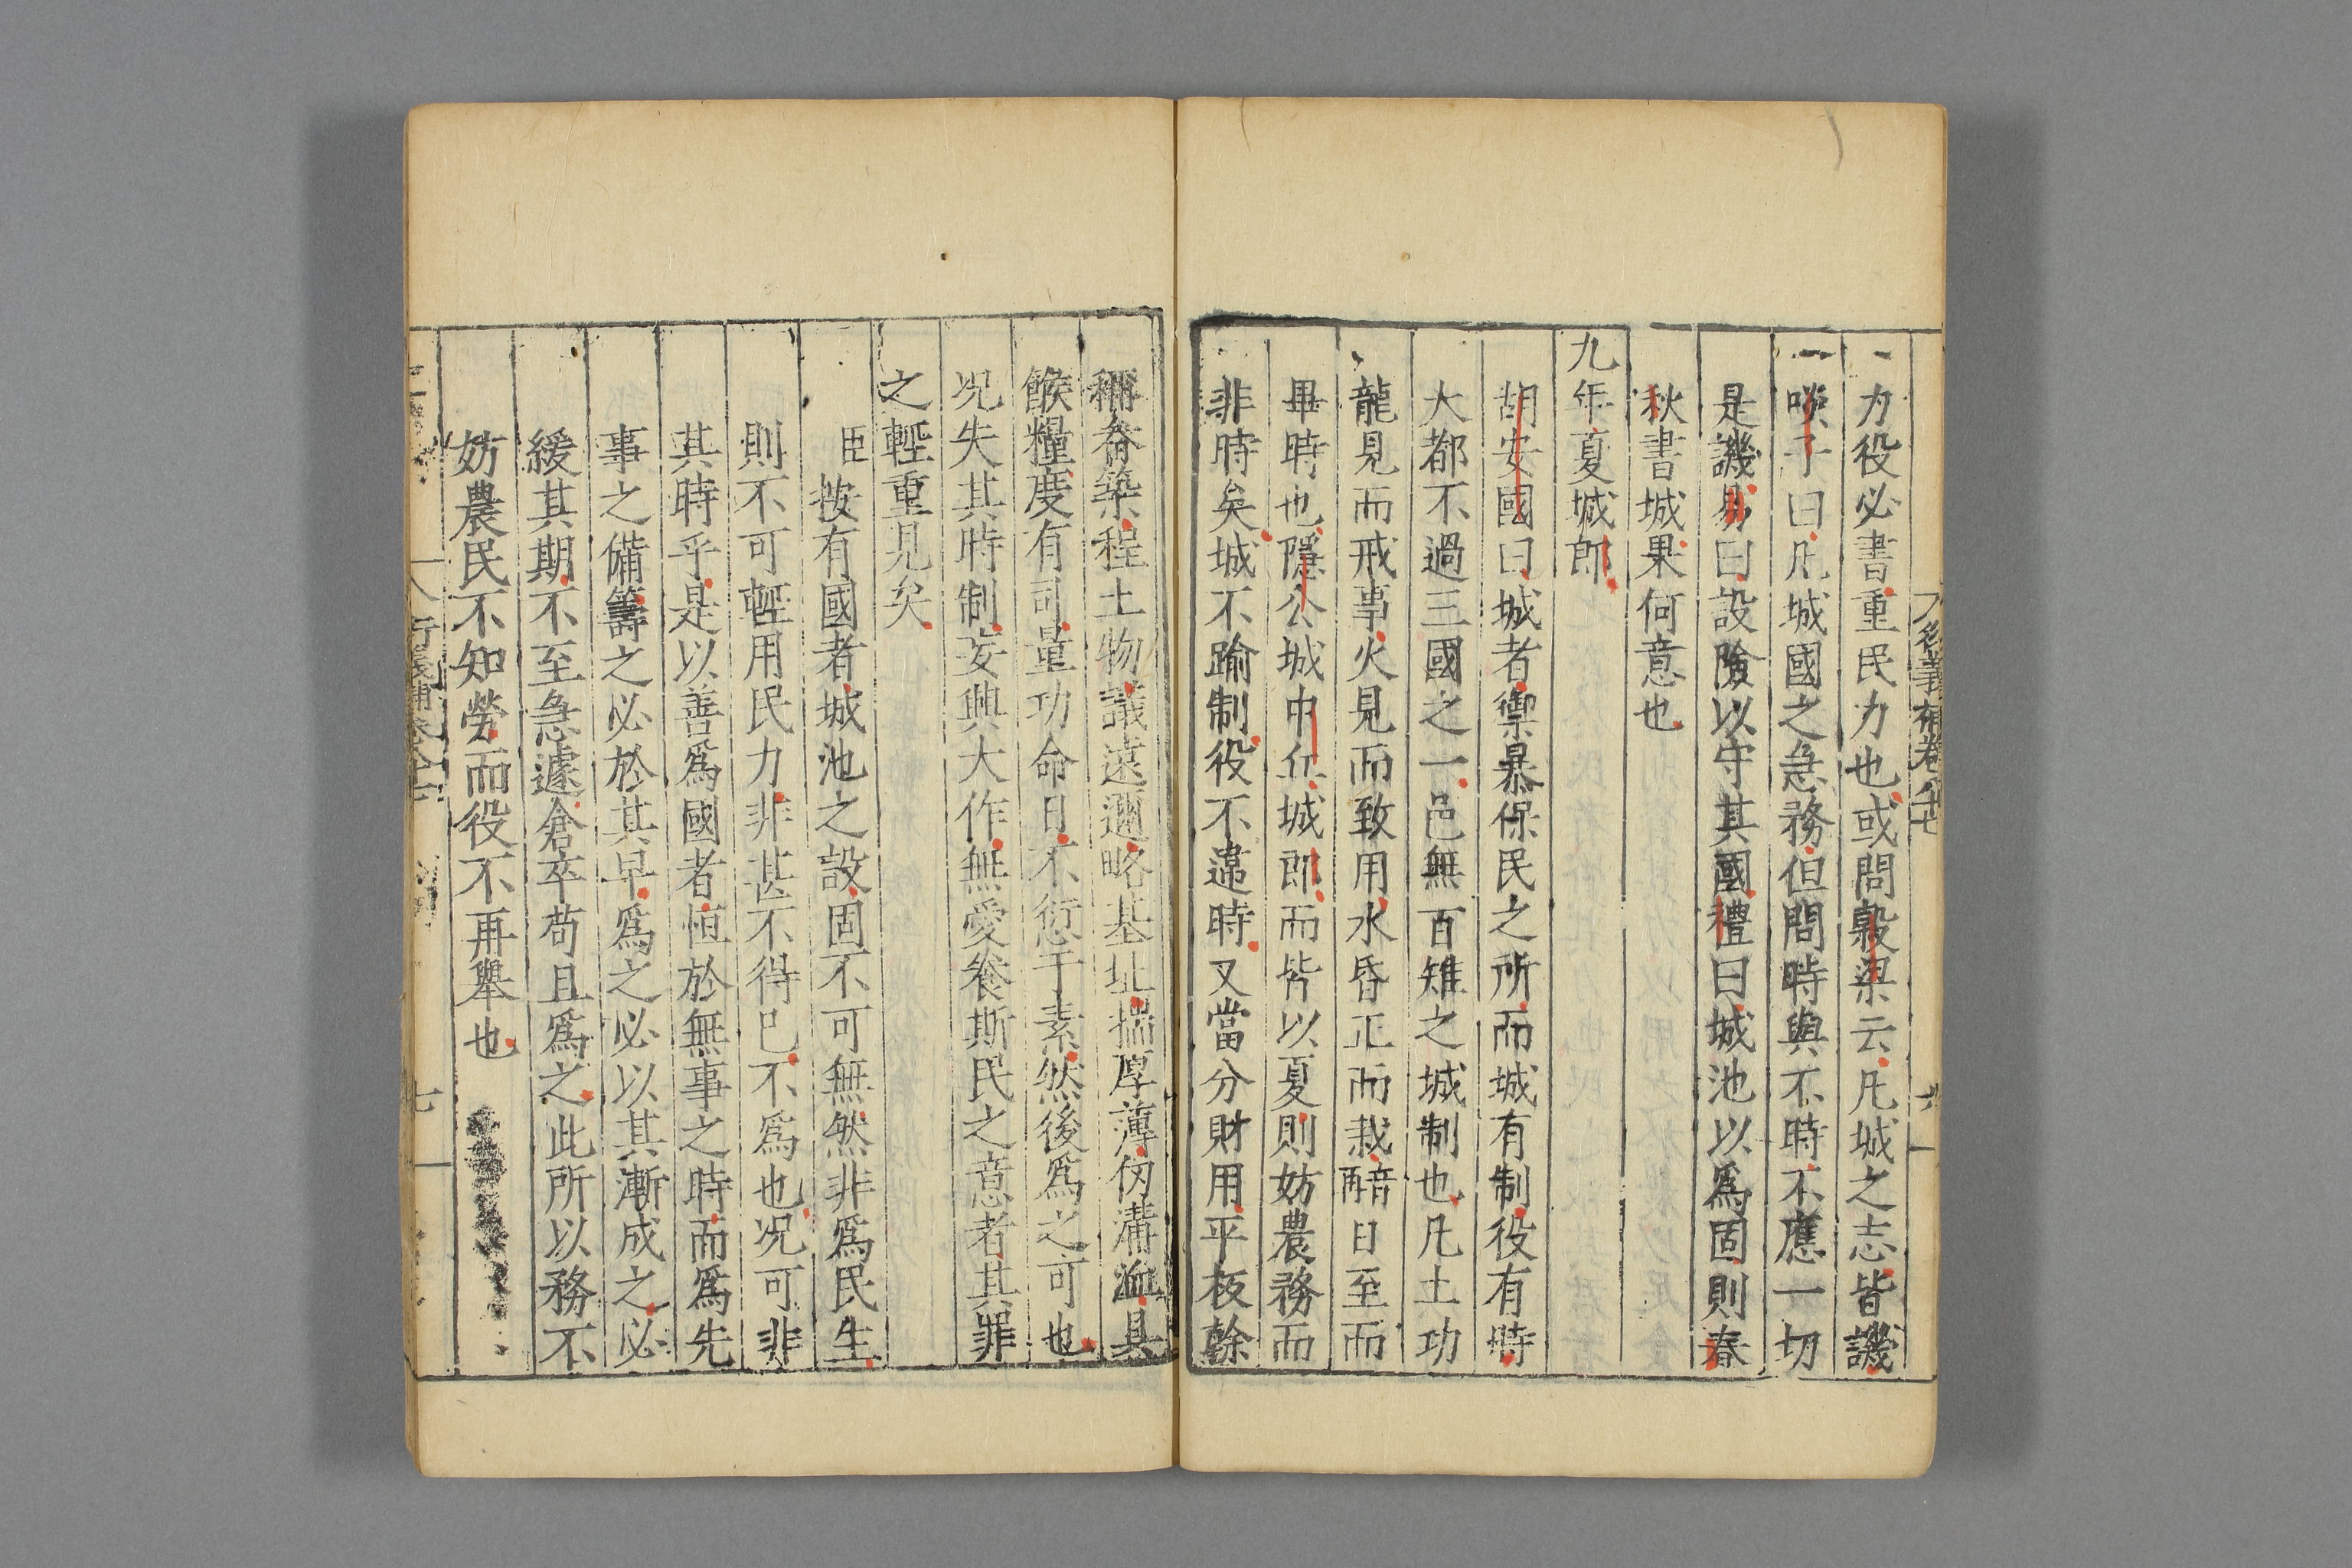 力役必書重民力也或問穀梁云凡城之志皆譏
啖子曰凡城國之急務但問時與不時不應一切
是譏易曰設險以守其國禮曰城池以爲固則春
秋書城果何意也
九年夏城郎
胡安國曰城者禦暴保民之所而城有制役有時
大都不過三國之一邑無百雉之城制也凡土功
龍見而戒事火見而致用水昏正而栽日至而
畢時也隱公城中丘城郎而皆以夏則妨農務而
非時矣城不踰制役不違時又當分財用平板榦
稱畚築程土物議遠邇略基址揣厚薄仞溝洫具
餱糧度有司量功命日不愆于素然後爲之可也
况失其時制妄興大作無愛養斯民之意者其罪
之輕重見矣
臣按有國者城池之設固不可無然非爲民生
則不可輕用民力非甚不得已不爲也况可非
其時乎是以善爲國者恒於無事之時而爲先
事之備籌之必於其早爲之必以其漸成之必
緩其期不至急遽倉卒苟且爲之此所以務不
妨農民不知勞而役不再舉也
七